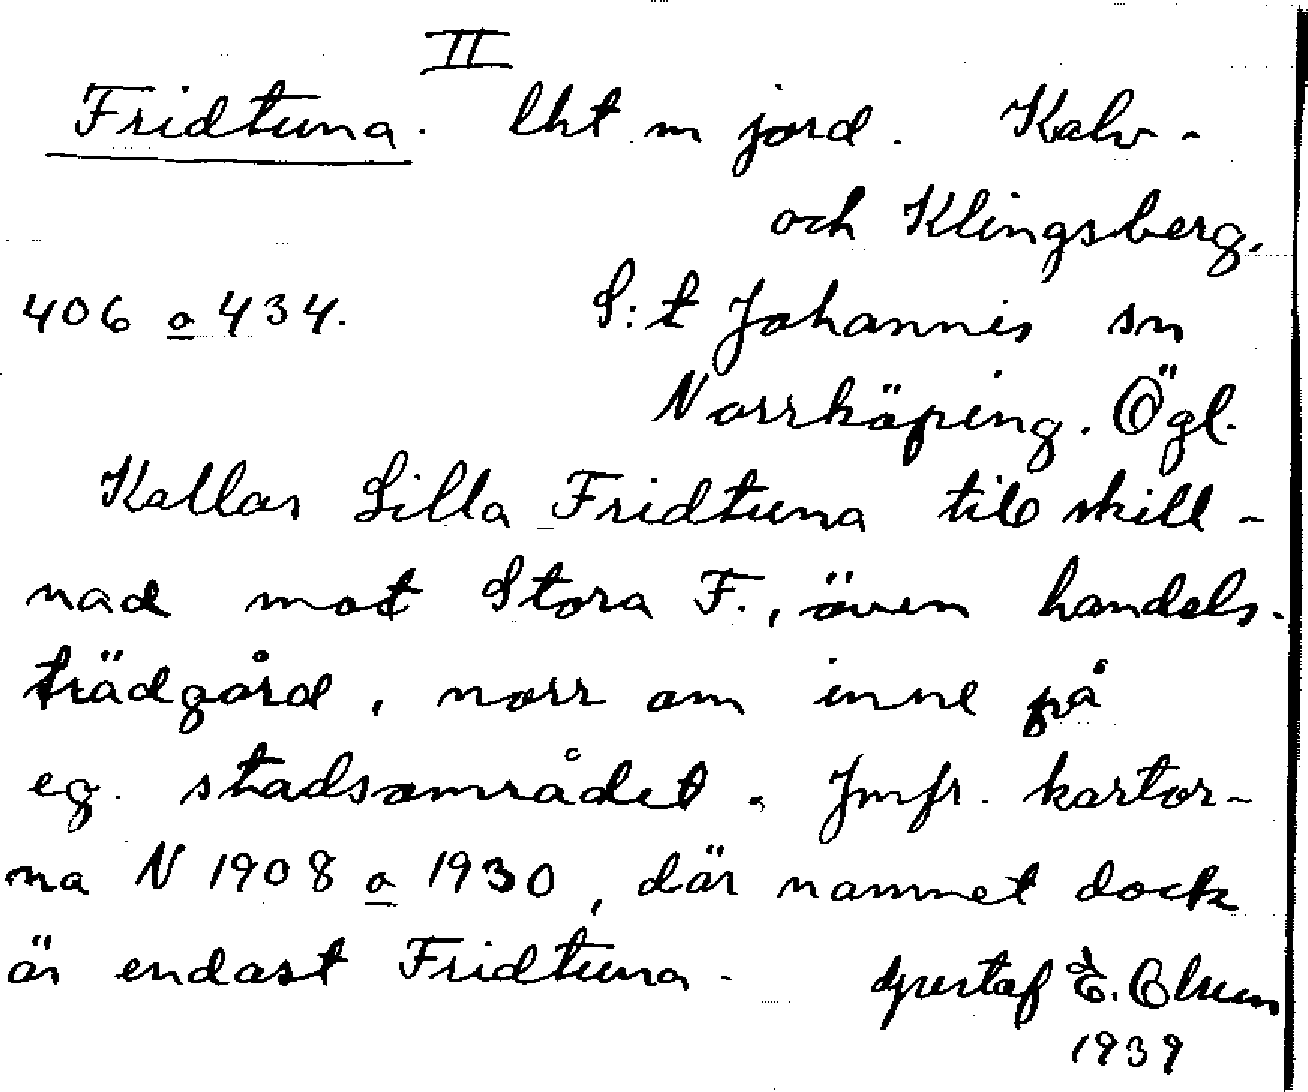 II
Fridtuna. lht m jord. Kalv-
och Klingsberg.
406 o 434. S:t Johannis sn
Norrköping. Ögl.
Kallas Lilla Fridtuna till skill-
nad mot Stora F., även handels-
trädgård, norr om inne på
eg. stadsområdet. Jmfr. kartor-
na N 1908 o 1930, där namnet dock
är endast Fridtuna.
Gustaf E. Olsson
1939